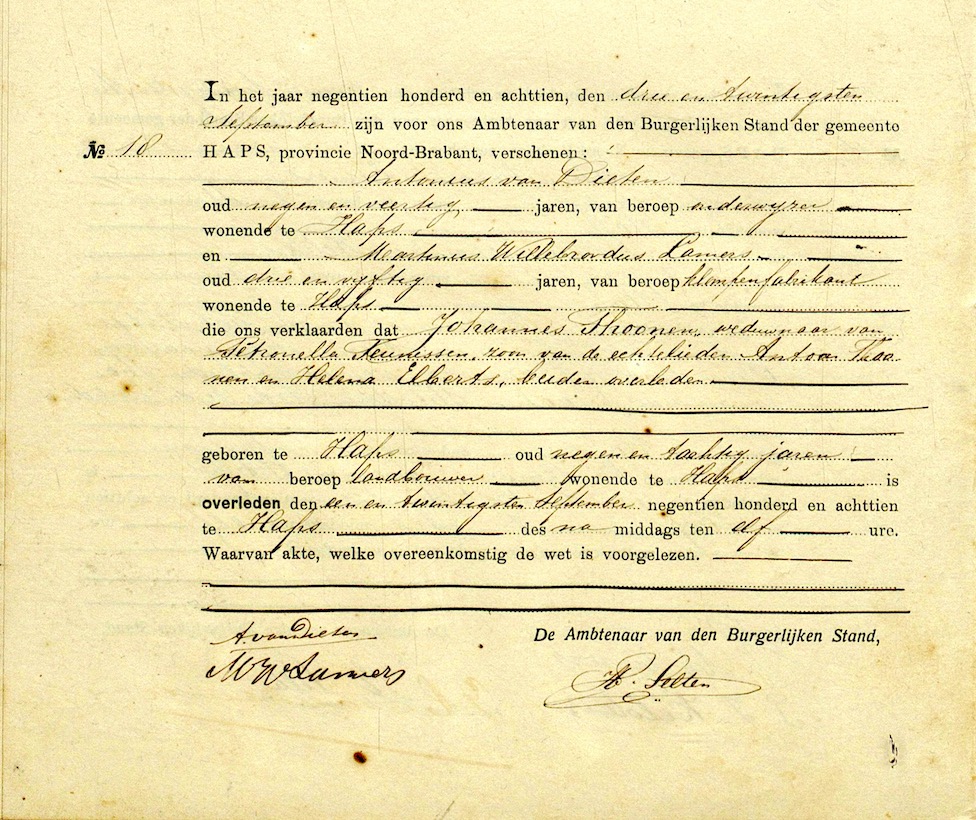 In het jaar negentien honderd en achttien, den drie en twintigsten
September zijn voor ons Ambtenaar van den Burgerlijken Stand der gemeente
No 18 HAPS, provincie Noord-Brabant, verschenen:
Antonius van Dieten
oud negen en veertig jaren, van beroep onderwijzer
wonende te Haps
en Martinus Willebrordus Lamers
oud drie en vijftig jaren, van beroep klompenfabrikant
wonende te Haps
die ons verklaarden dat Johannes Thoonen, weduwnaar van
Petronella Teunissen, zoon van de echtelieden Antoon Thoo-
nen en Helena Elberts, beiden overleden
geboren te Haps oud negen en tachtig jaren
van beroep landbouwer wonende te Haps is
overleden den een en twintigsten September negentien honderd en achttien
te Haps des na middags ten elf ure.
Waarvan akte, welke overeenkomstig de wet is voorgelezen.
De Ambtenaar van den Burgerlijken Stand,
A. van Dieten
M W Lamers